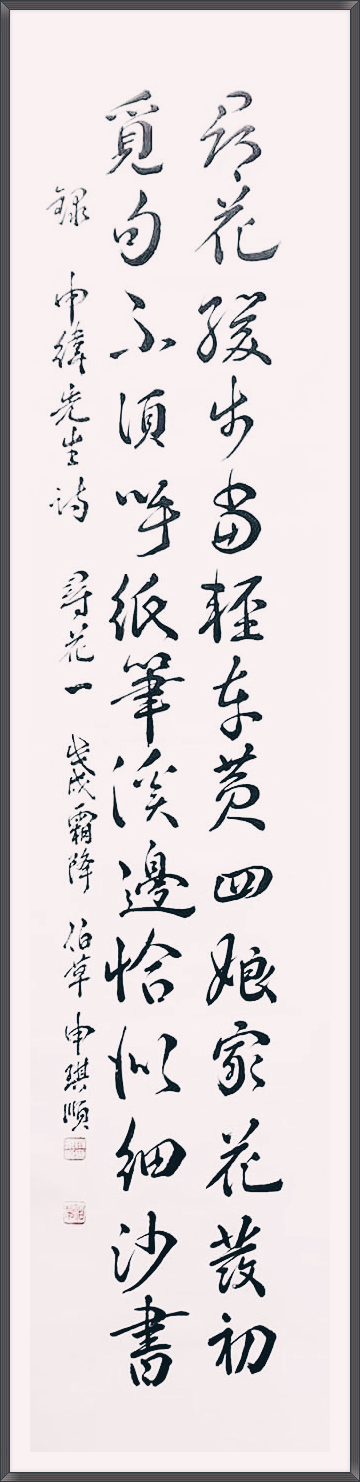 尋花緩步當輕車黃四娘家花發初
覓句不須呼紙筆溪邊恰似細沙書
錄 申緯先生詩 尋花一 歲戊戌霜降 伯草 申琪順